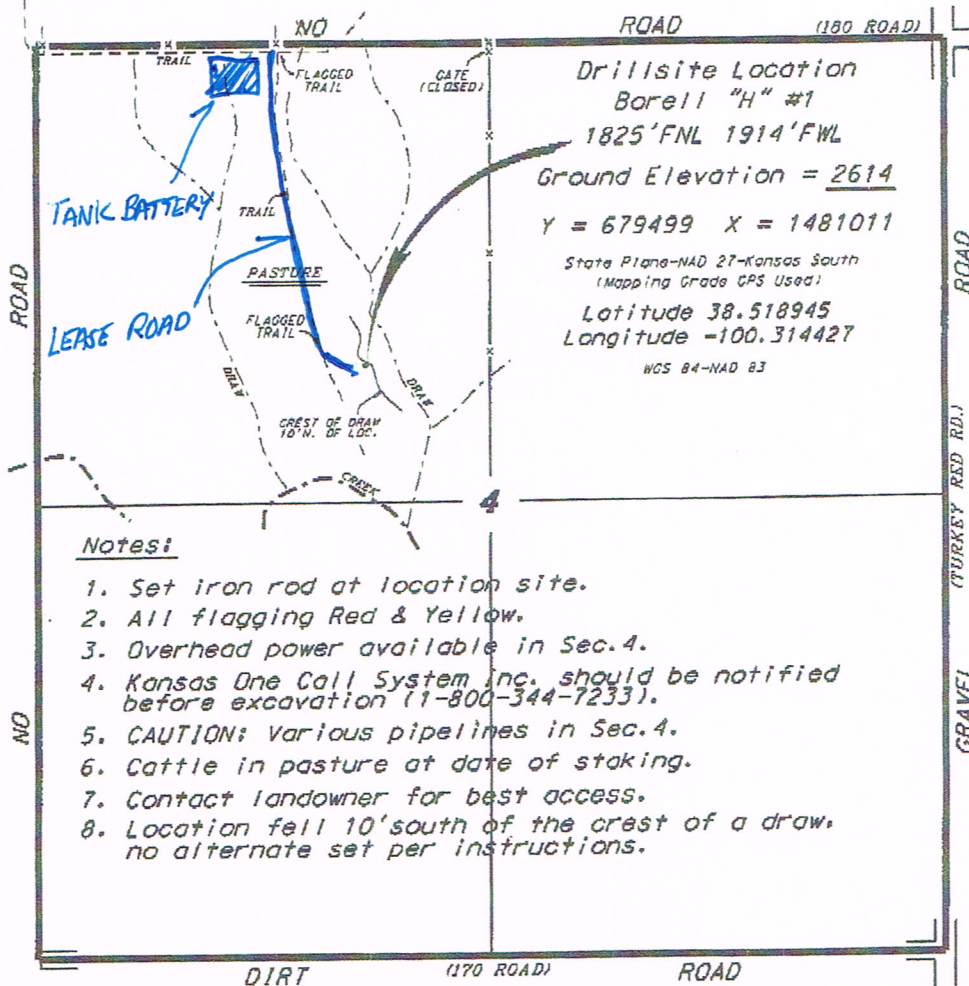 NO ROAD (180 ROAD)
TRAIL
FLAGGED
TRAIL
GATE
(CLOSED)
Drillsite Location
Borell "H" #1
1825'FNL 1914'FWL
Ground Elevation = 2614
Y = 679499 X = 1481011
State Plane-NAD 27-Kansas South
(Mapping Grade GPS Used)
Latitude 38.518945
Longitude -100.314427
WGS 84-NAD 83
TANK BATTERY
TRAIL
PASTURE
LEASE ROAD
FLAGGED
TRAIL
DRAW
DRAW
CREST OF DRAW
10'N. OF LOC.
CREEK
4
NO ROAD
GRAVEL (TURKEY RED RD.) ROAD
Notes:
1. Set iron rod at location site.
2. All flagging Red & Yellow.
3. Overhead power available in Sec.4.
4. Kansas One Call System Inc. should be notified
before excavation (1-800-344-7233).
5. CAUTION: Various pipelines in Sec.4.
6. Cattle in pasture at date of staking.
7. Contact landowner for best access.
8. Location fell 10'south of the crest of a draw.
no alternate set per instructions.
DIRT (170 ROAD) ROAD